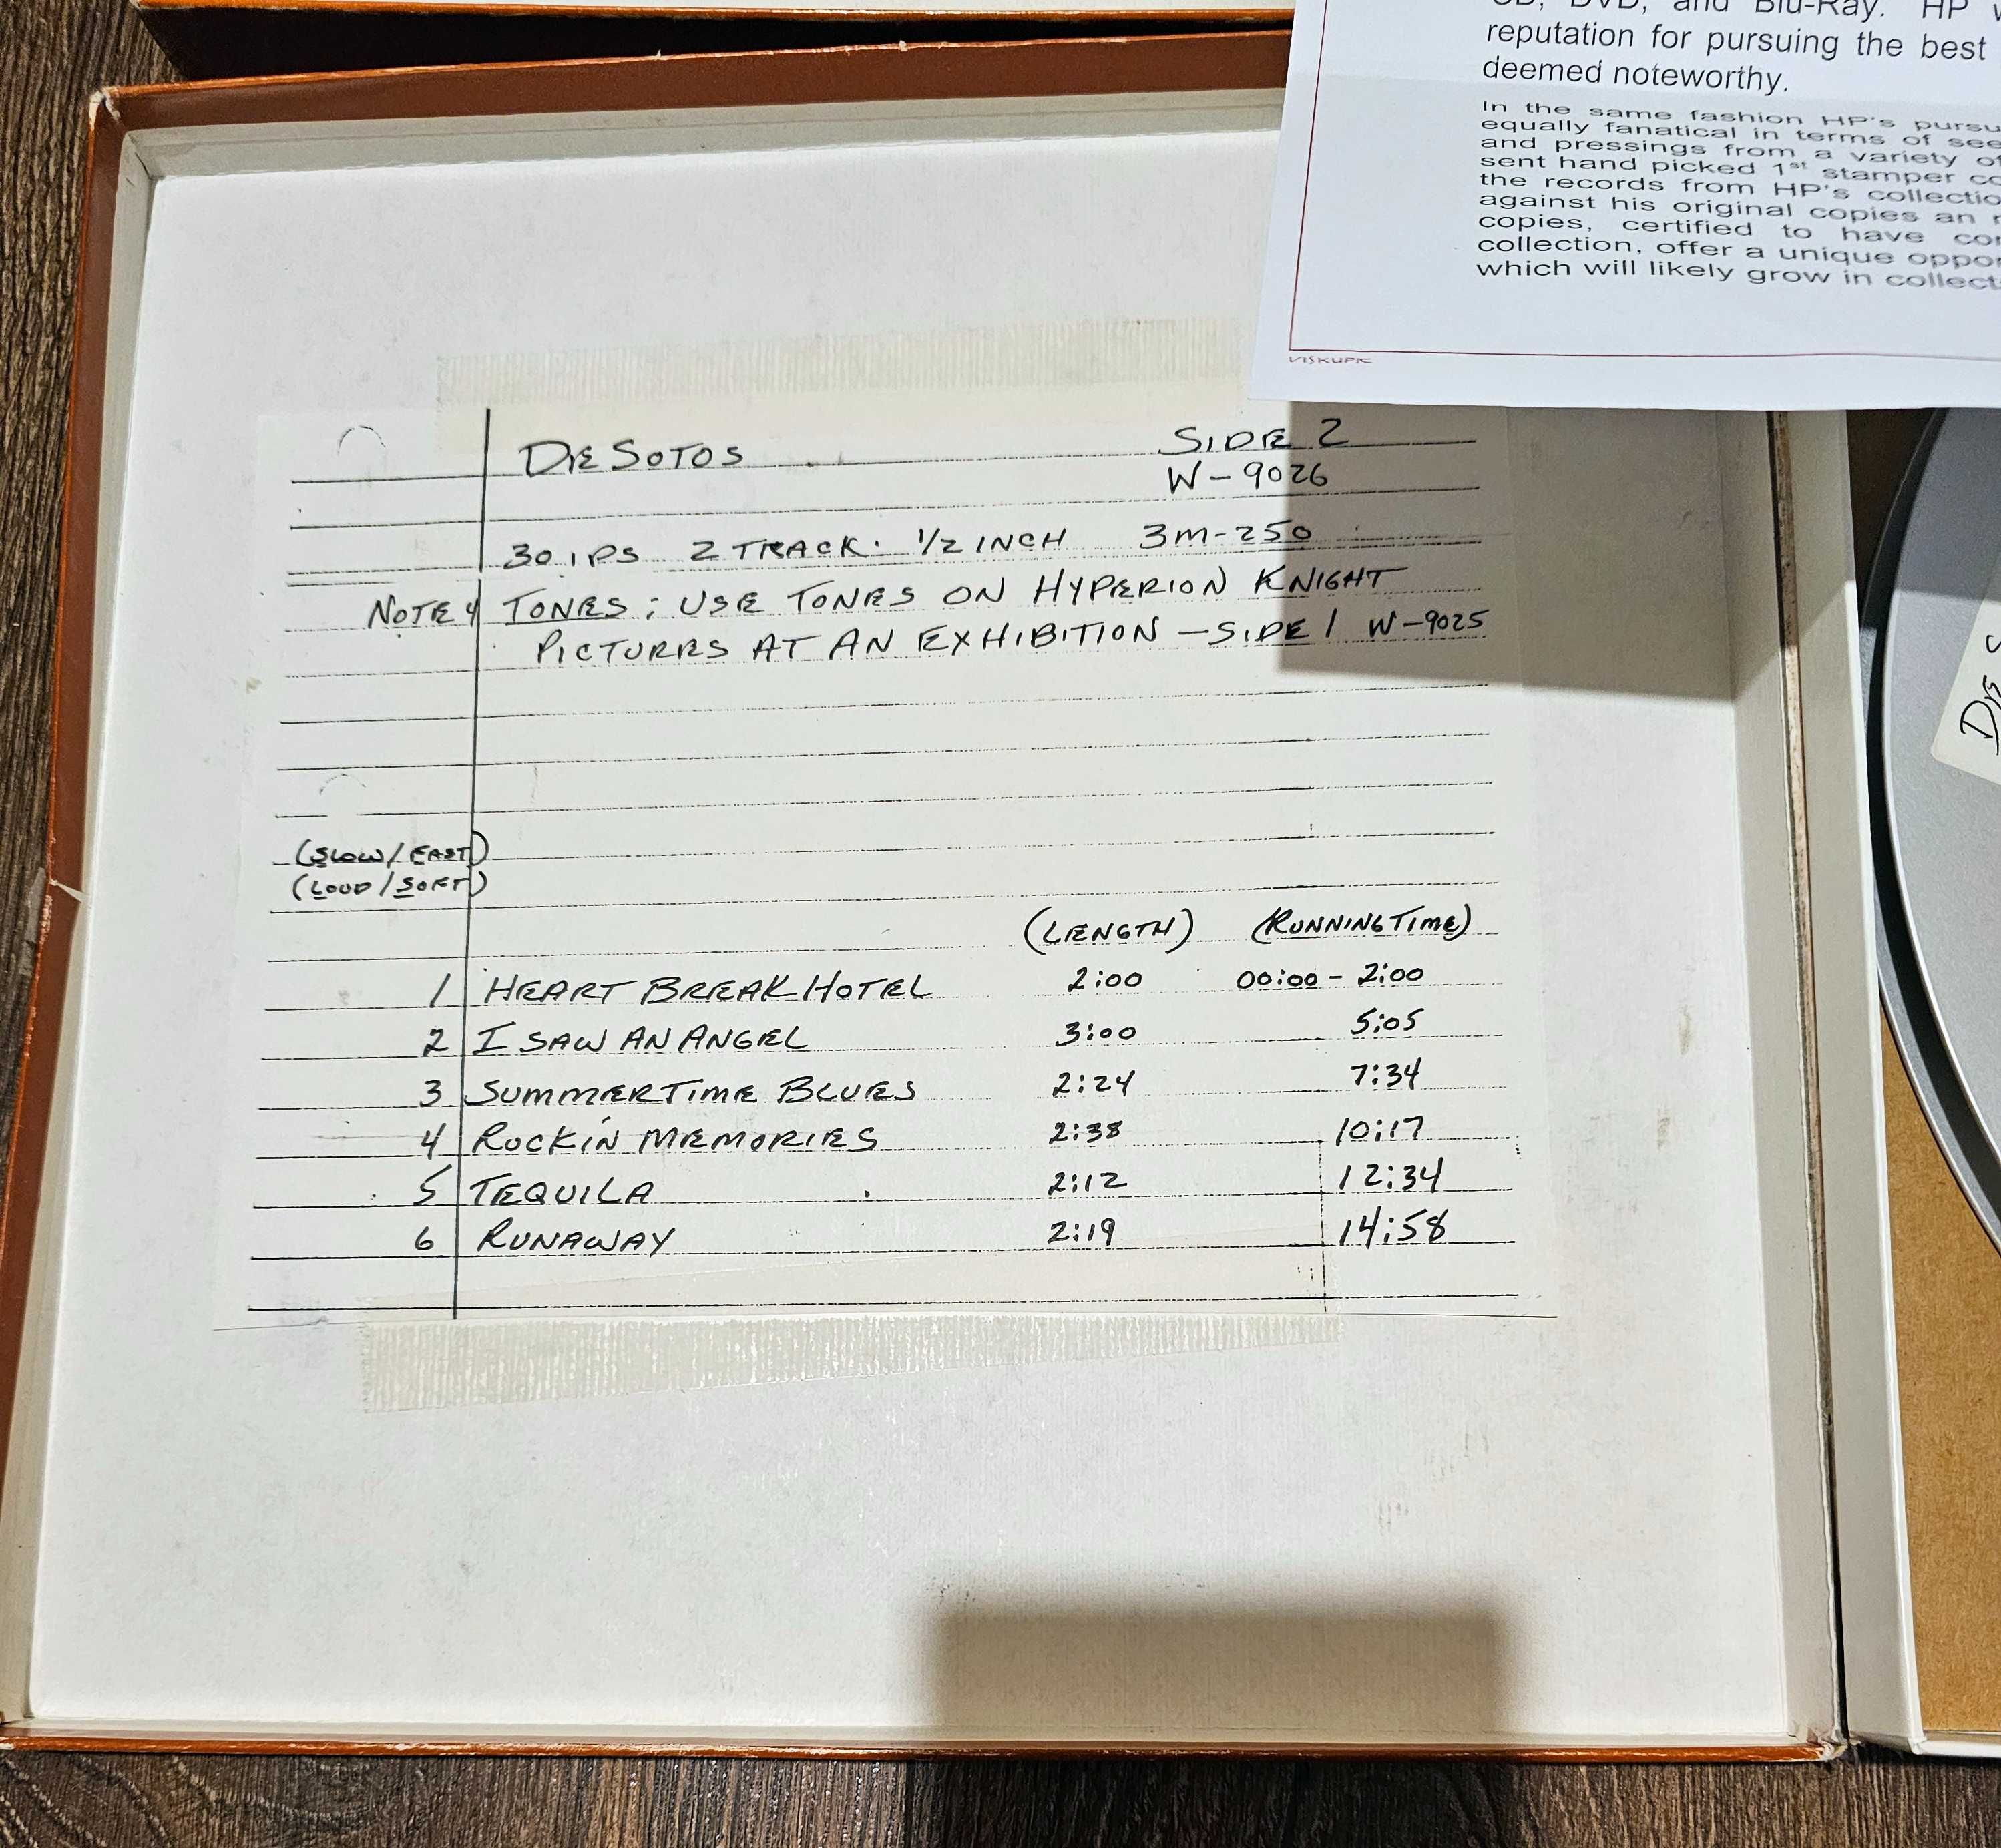 DVD, and Blu-Ray. HP
reputation for pursuing the best
deemed noteworthy.
In the same fashion HP's
equally fanatical in terms of
and pressings from a variety
sent hand picked 1st stamper
the records from HP's
against his original copies an
copies, certified to have
collection, offer a unique
which will likely grow in
VISKUPIC
DESOTOS SIDE 2
W-9026
30 IPS 2 TRACK. 1/2 INCH 3M-250
NOTE 4 TONES: USE TONES ON HYPERION KNIGHT
PICTURES AT AN EXHIBITION - SIDE 1 W-9025
(SLOW/FAST)
(LOUD/SOFT)
(LENGTH) (RUNNING TIME)
1 HEART BREAK HOTEL 2:00 00:00 - 2:00
2 I SAW AN ANGEL 3:00 5:05
3 SUMMERTIME BLUES 2:24 7:34
4 ROCKIN MEMORIES 2:38 10:17
5 TEQUILA 2:12 12:34
6 RUNAWAY 2:19 14:58